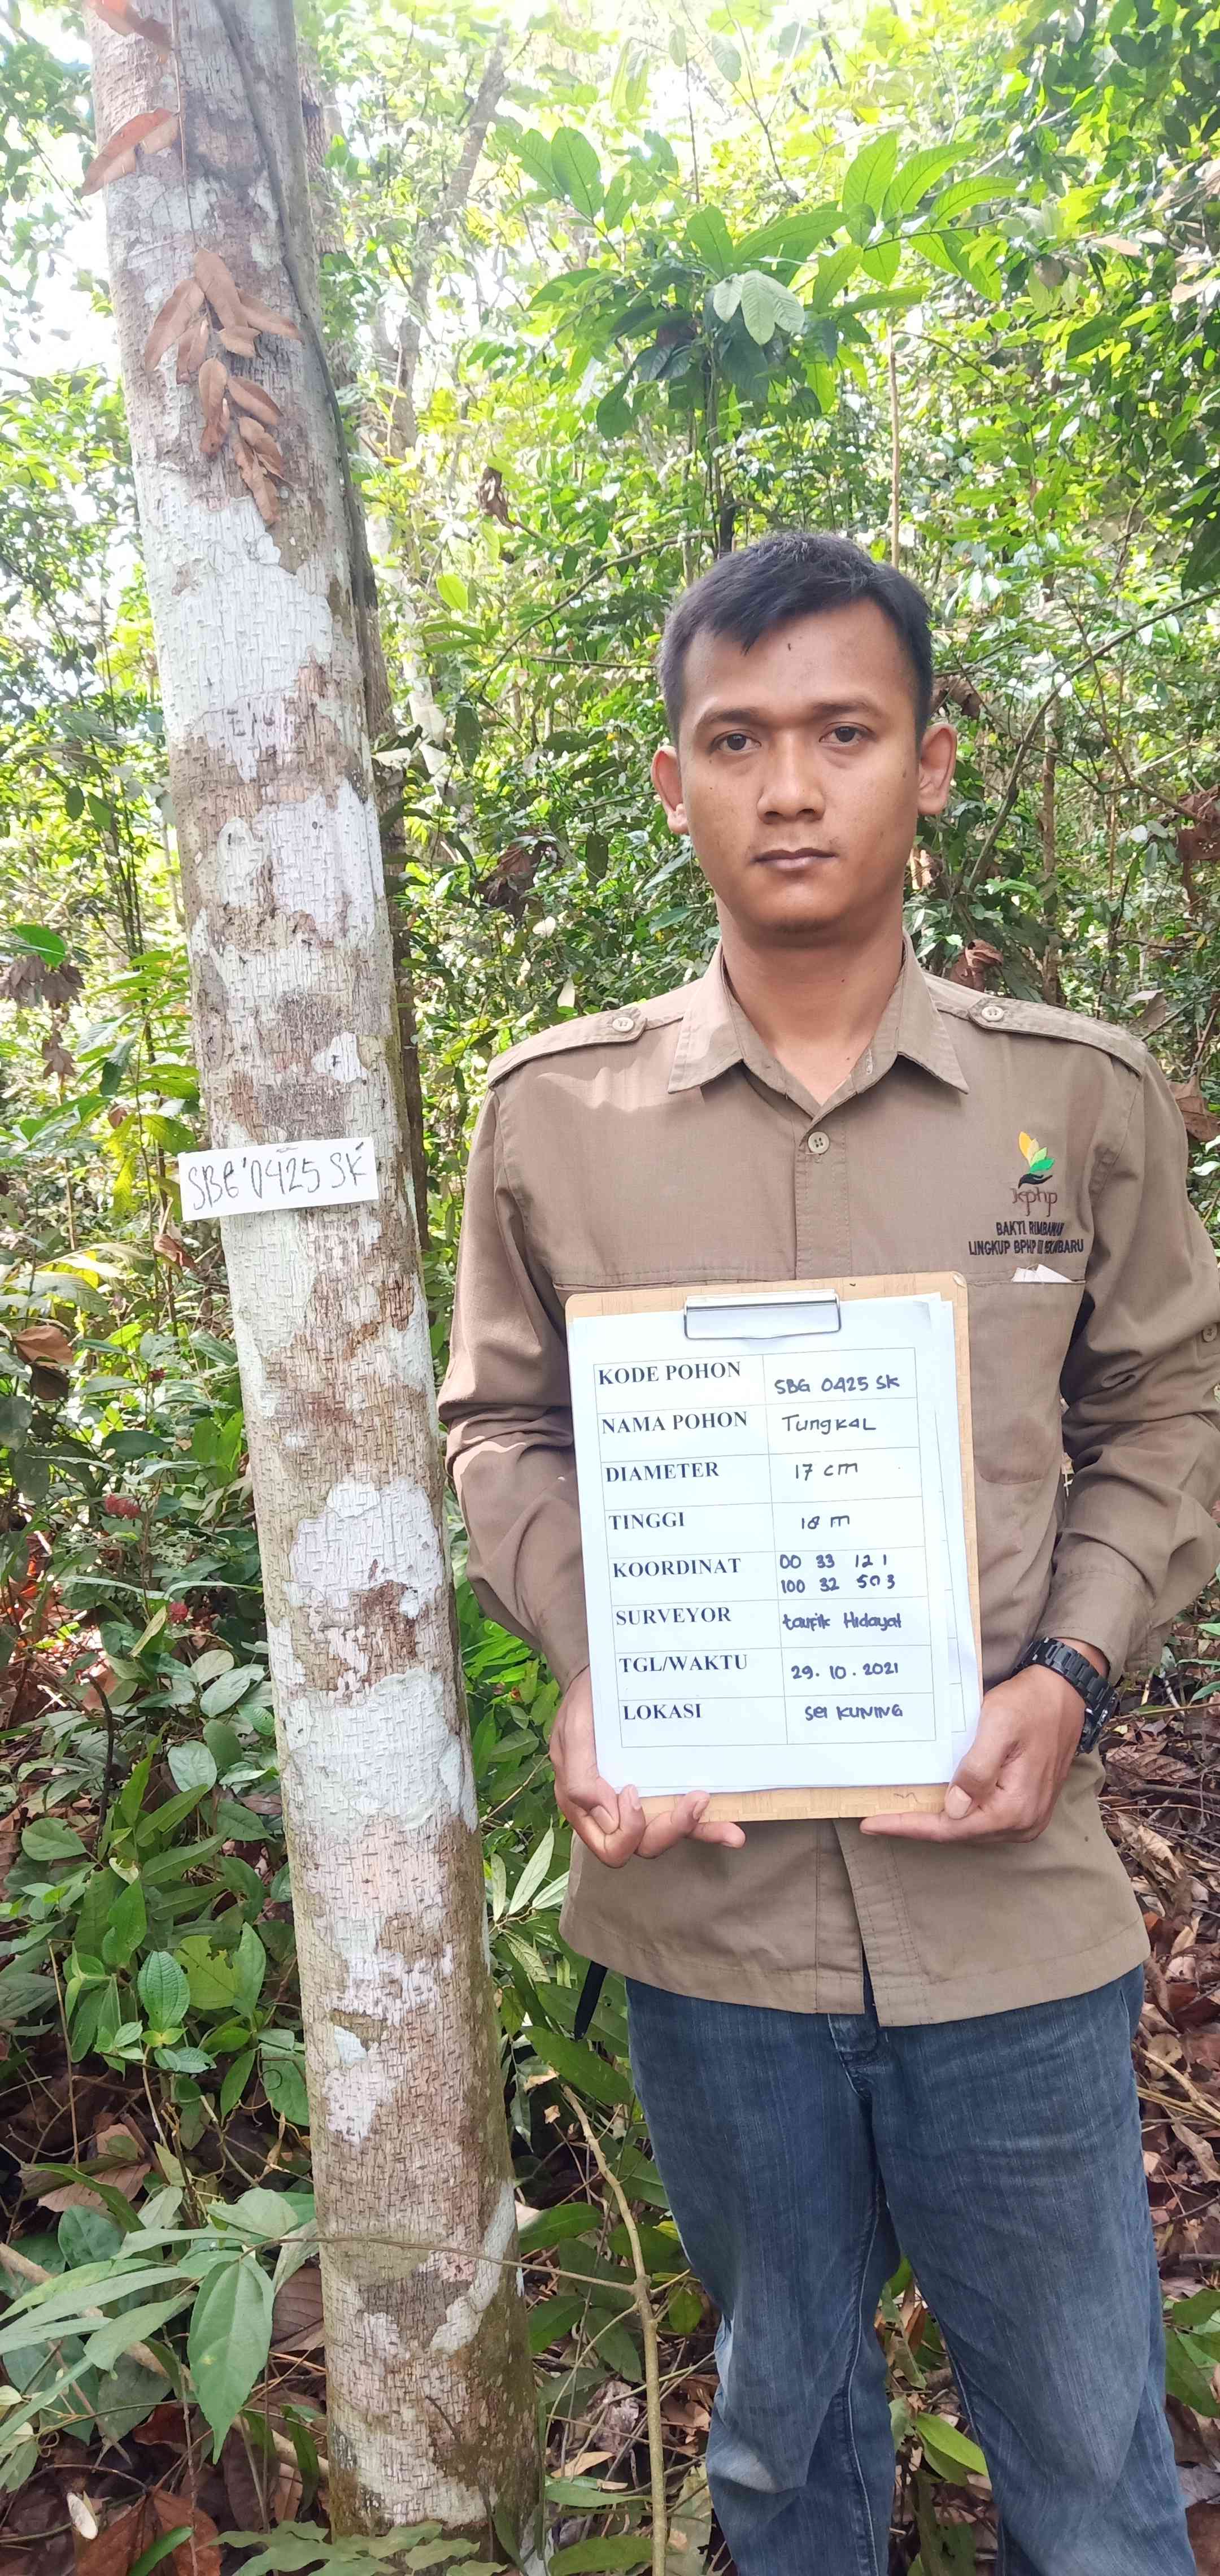 SBG 0425 SK
kphp
BAKTI RIMBAWAN
LINGKUP BPHP III PEKANBARU
KODE POHON SBG 0425 SK
NAMA POHON TungKaL
DIAMETER 17 cm
TINGGI 18 m
KOORDINAT 00 33 121
100 32 503
SURVEYOR taufik Hidayat
TGL/WAKTU 29.10.2021
LOKASI SEI KUNING